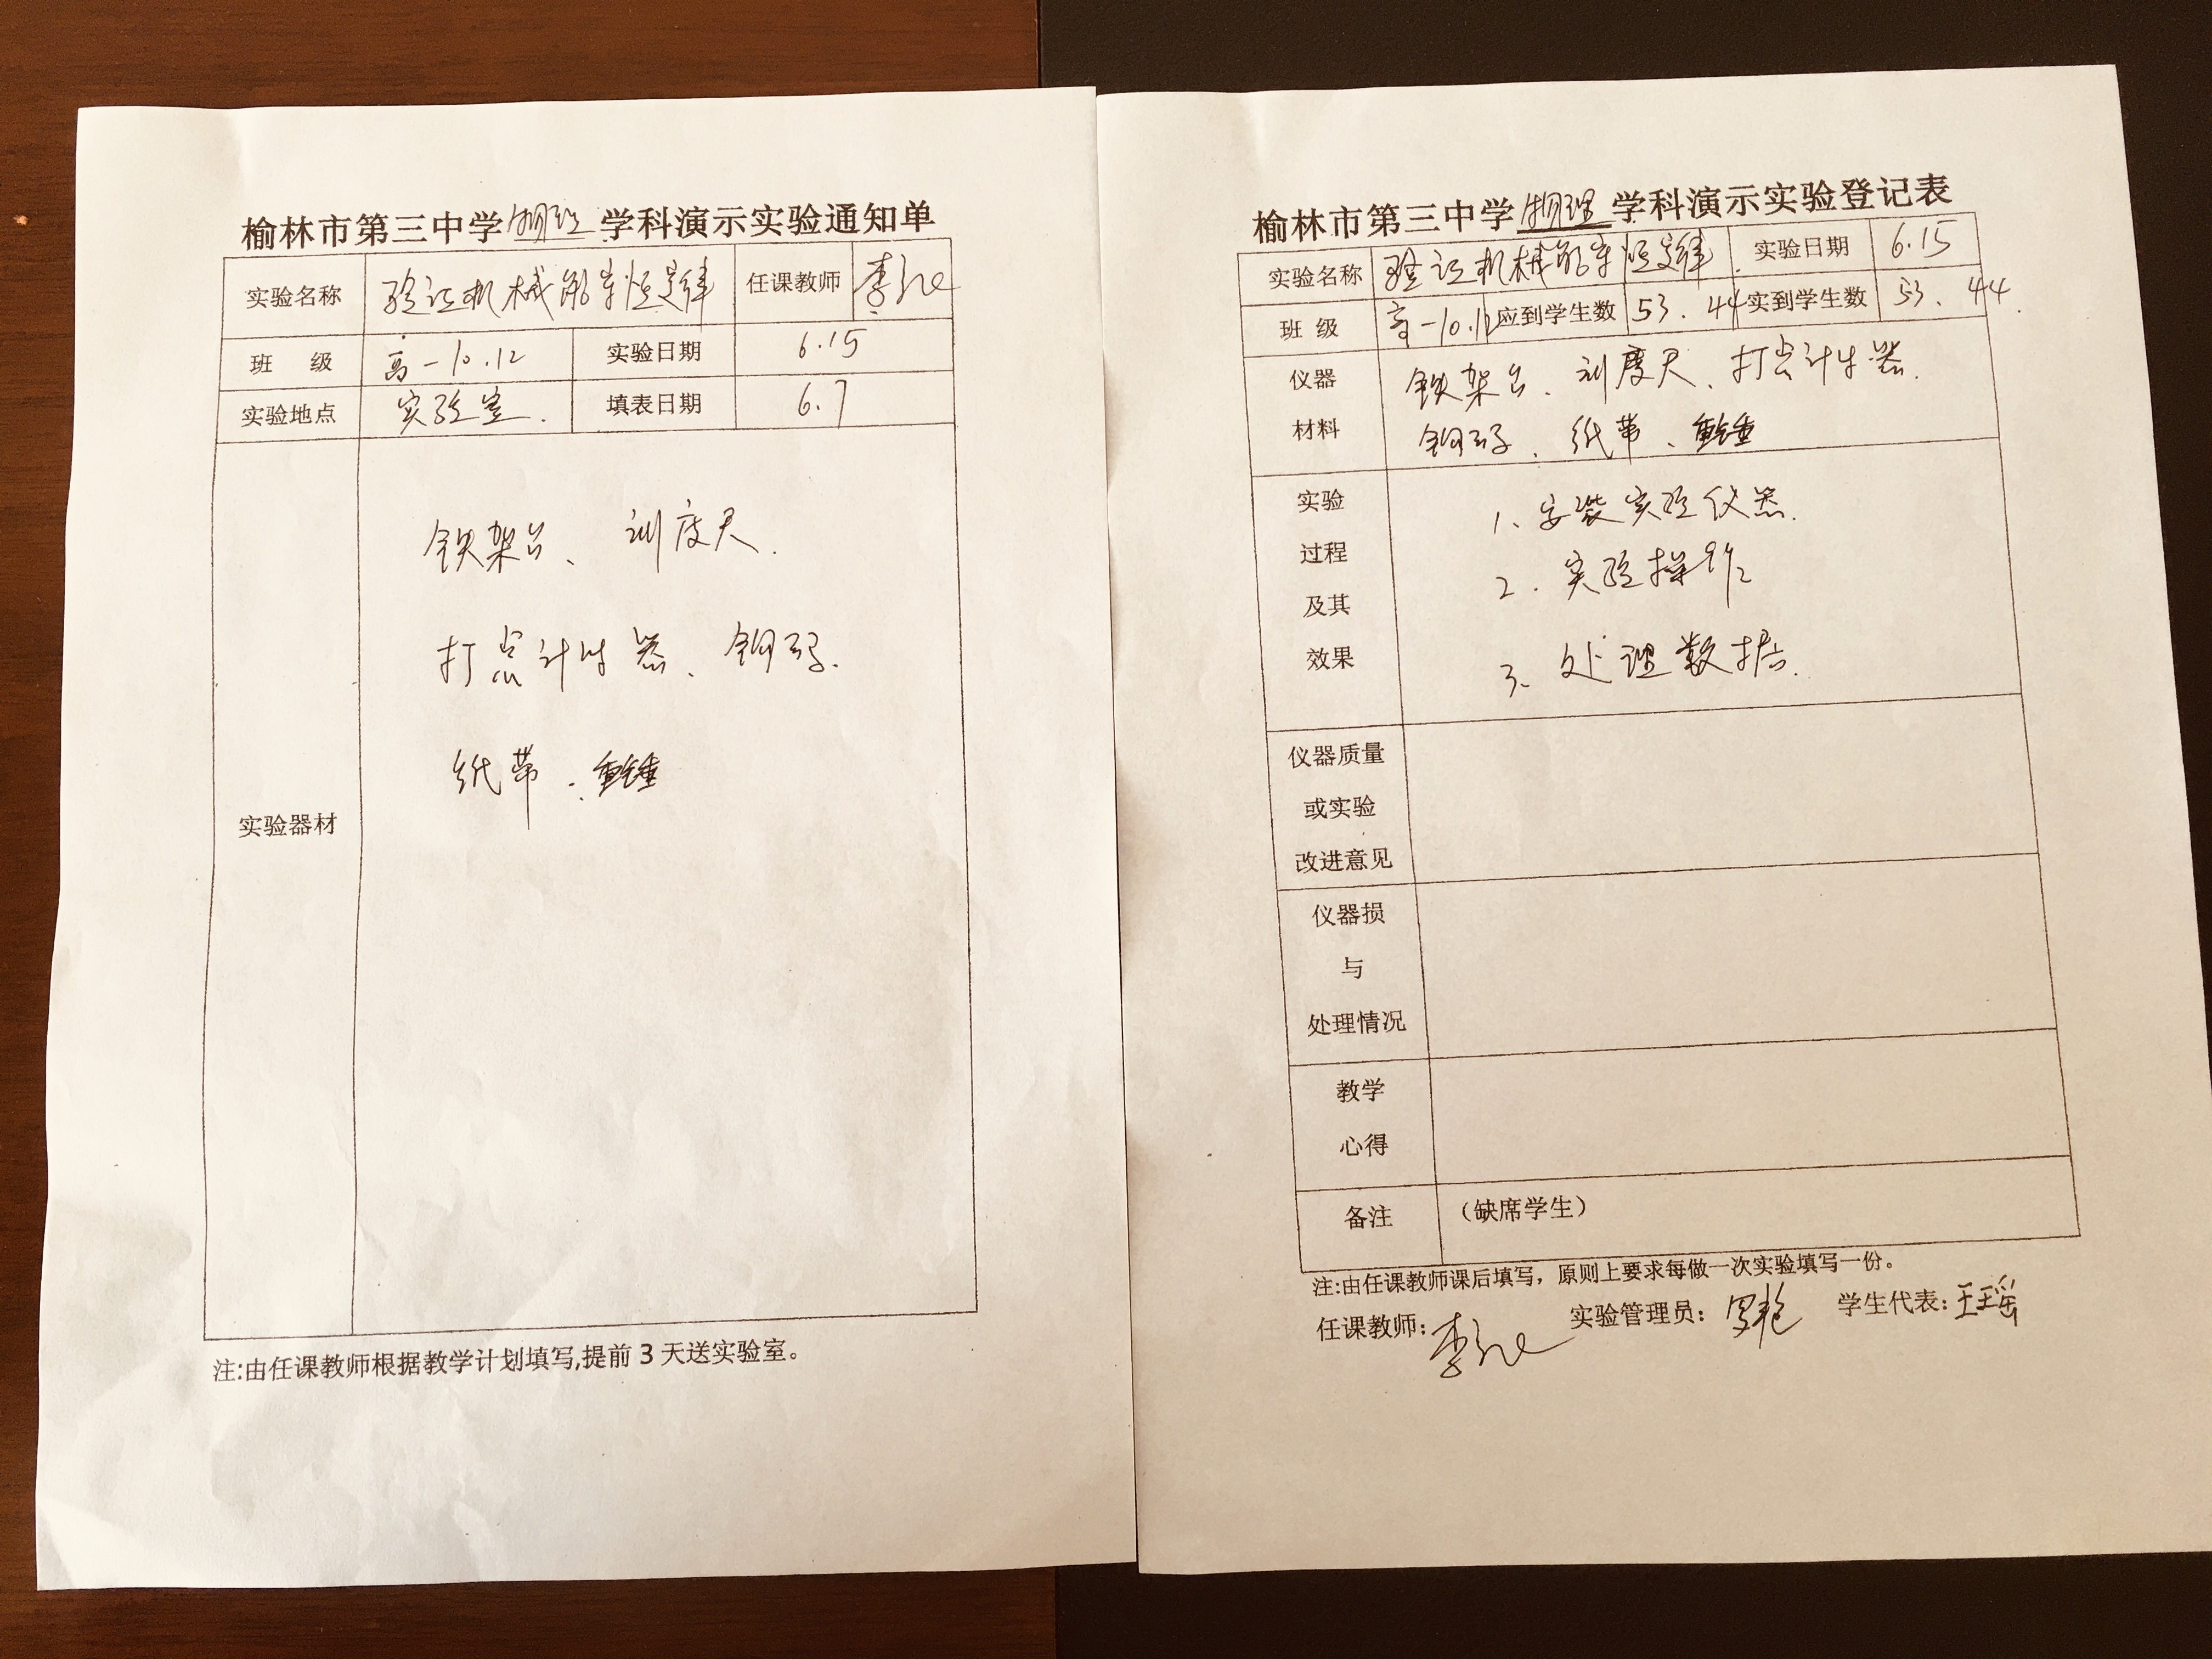 榆林市第三中学物理学科演示实验通知单
实验名称 验证机械能守恒定律 任课教师 李
班 级 高一10.12 实验日期 6.15
实验地点 实验室. 填表日期 6.7
实验器材
铁架台、刻度尺.
打点计时器、钩码.
纸带、重锤
注:由任课教师根据教学计划填写,提前3天送实验室。
榆林市第三中学物理学科演示实验登记表
实验名称 验证机械能守恒定律. 实验日期 6.15
班 级 高一10.12 应到学生数 53.44 实到学生数 53、44.
仪器
材料
铁架台、刻度尺、打点计时器.
钩码、纸带、重锤
实验
过程
及其
效果
1、安装实验仪器.
2.实验操作
3、处理数据.
仪器质量
或实验
改进意见
仪器损
与
处理情况
教学
心得
备注 (缺席学生)
注:由任课教师课后填写，原则上要求每做一次实验填写一份。
任课教师: 李 实验管理员: 罗艳 学生代表: 王瑶